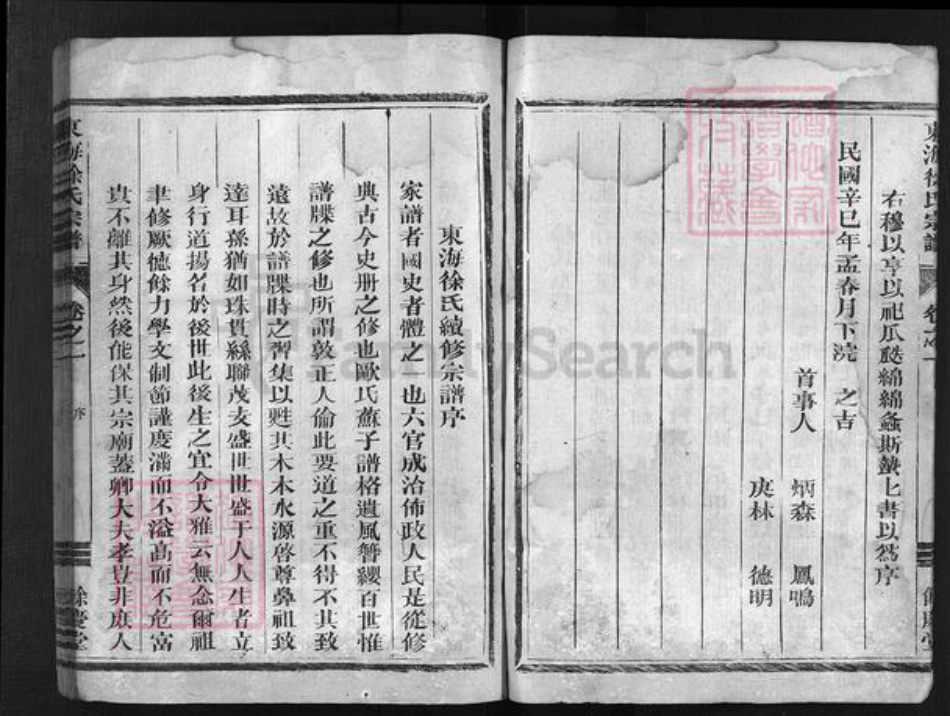 東海徐氏宗譜
卷之一
右穆以亨以祀瓜瓞綿綿螽斯蟄蟄書以為序
民國辛巳年孟春月下浣 之吉
首事人 炳森 鳳鳴
庚林 德明
東海徐氏續修宗譜序
家譜者國史者體之一也六官成治佈政人民是從修
典古今史册之修也歐氏蘇子譜格遺風簪纓百世惟
譜牒之修也所謂敦正人倫此要道之重不得不其致
遠故於譜牒時之習集以甦其木本水源啓尊彝祖致
達耳孫猶如珠貫絲聯茂支盛世世盛于人人生者立
身行道揚名於後世此後生之宜今大雅云無念爾祖
聿修厥德餘力學文制節謹度滿而不溢高而不危富
貴不離其身然後能保其宗廟蓋卿大夫孝豈非庶人
東海徐氏宗譜
卷之一
序
餘慶堂
FamilySearch